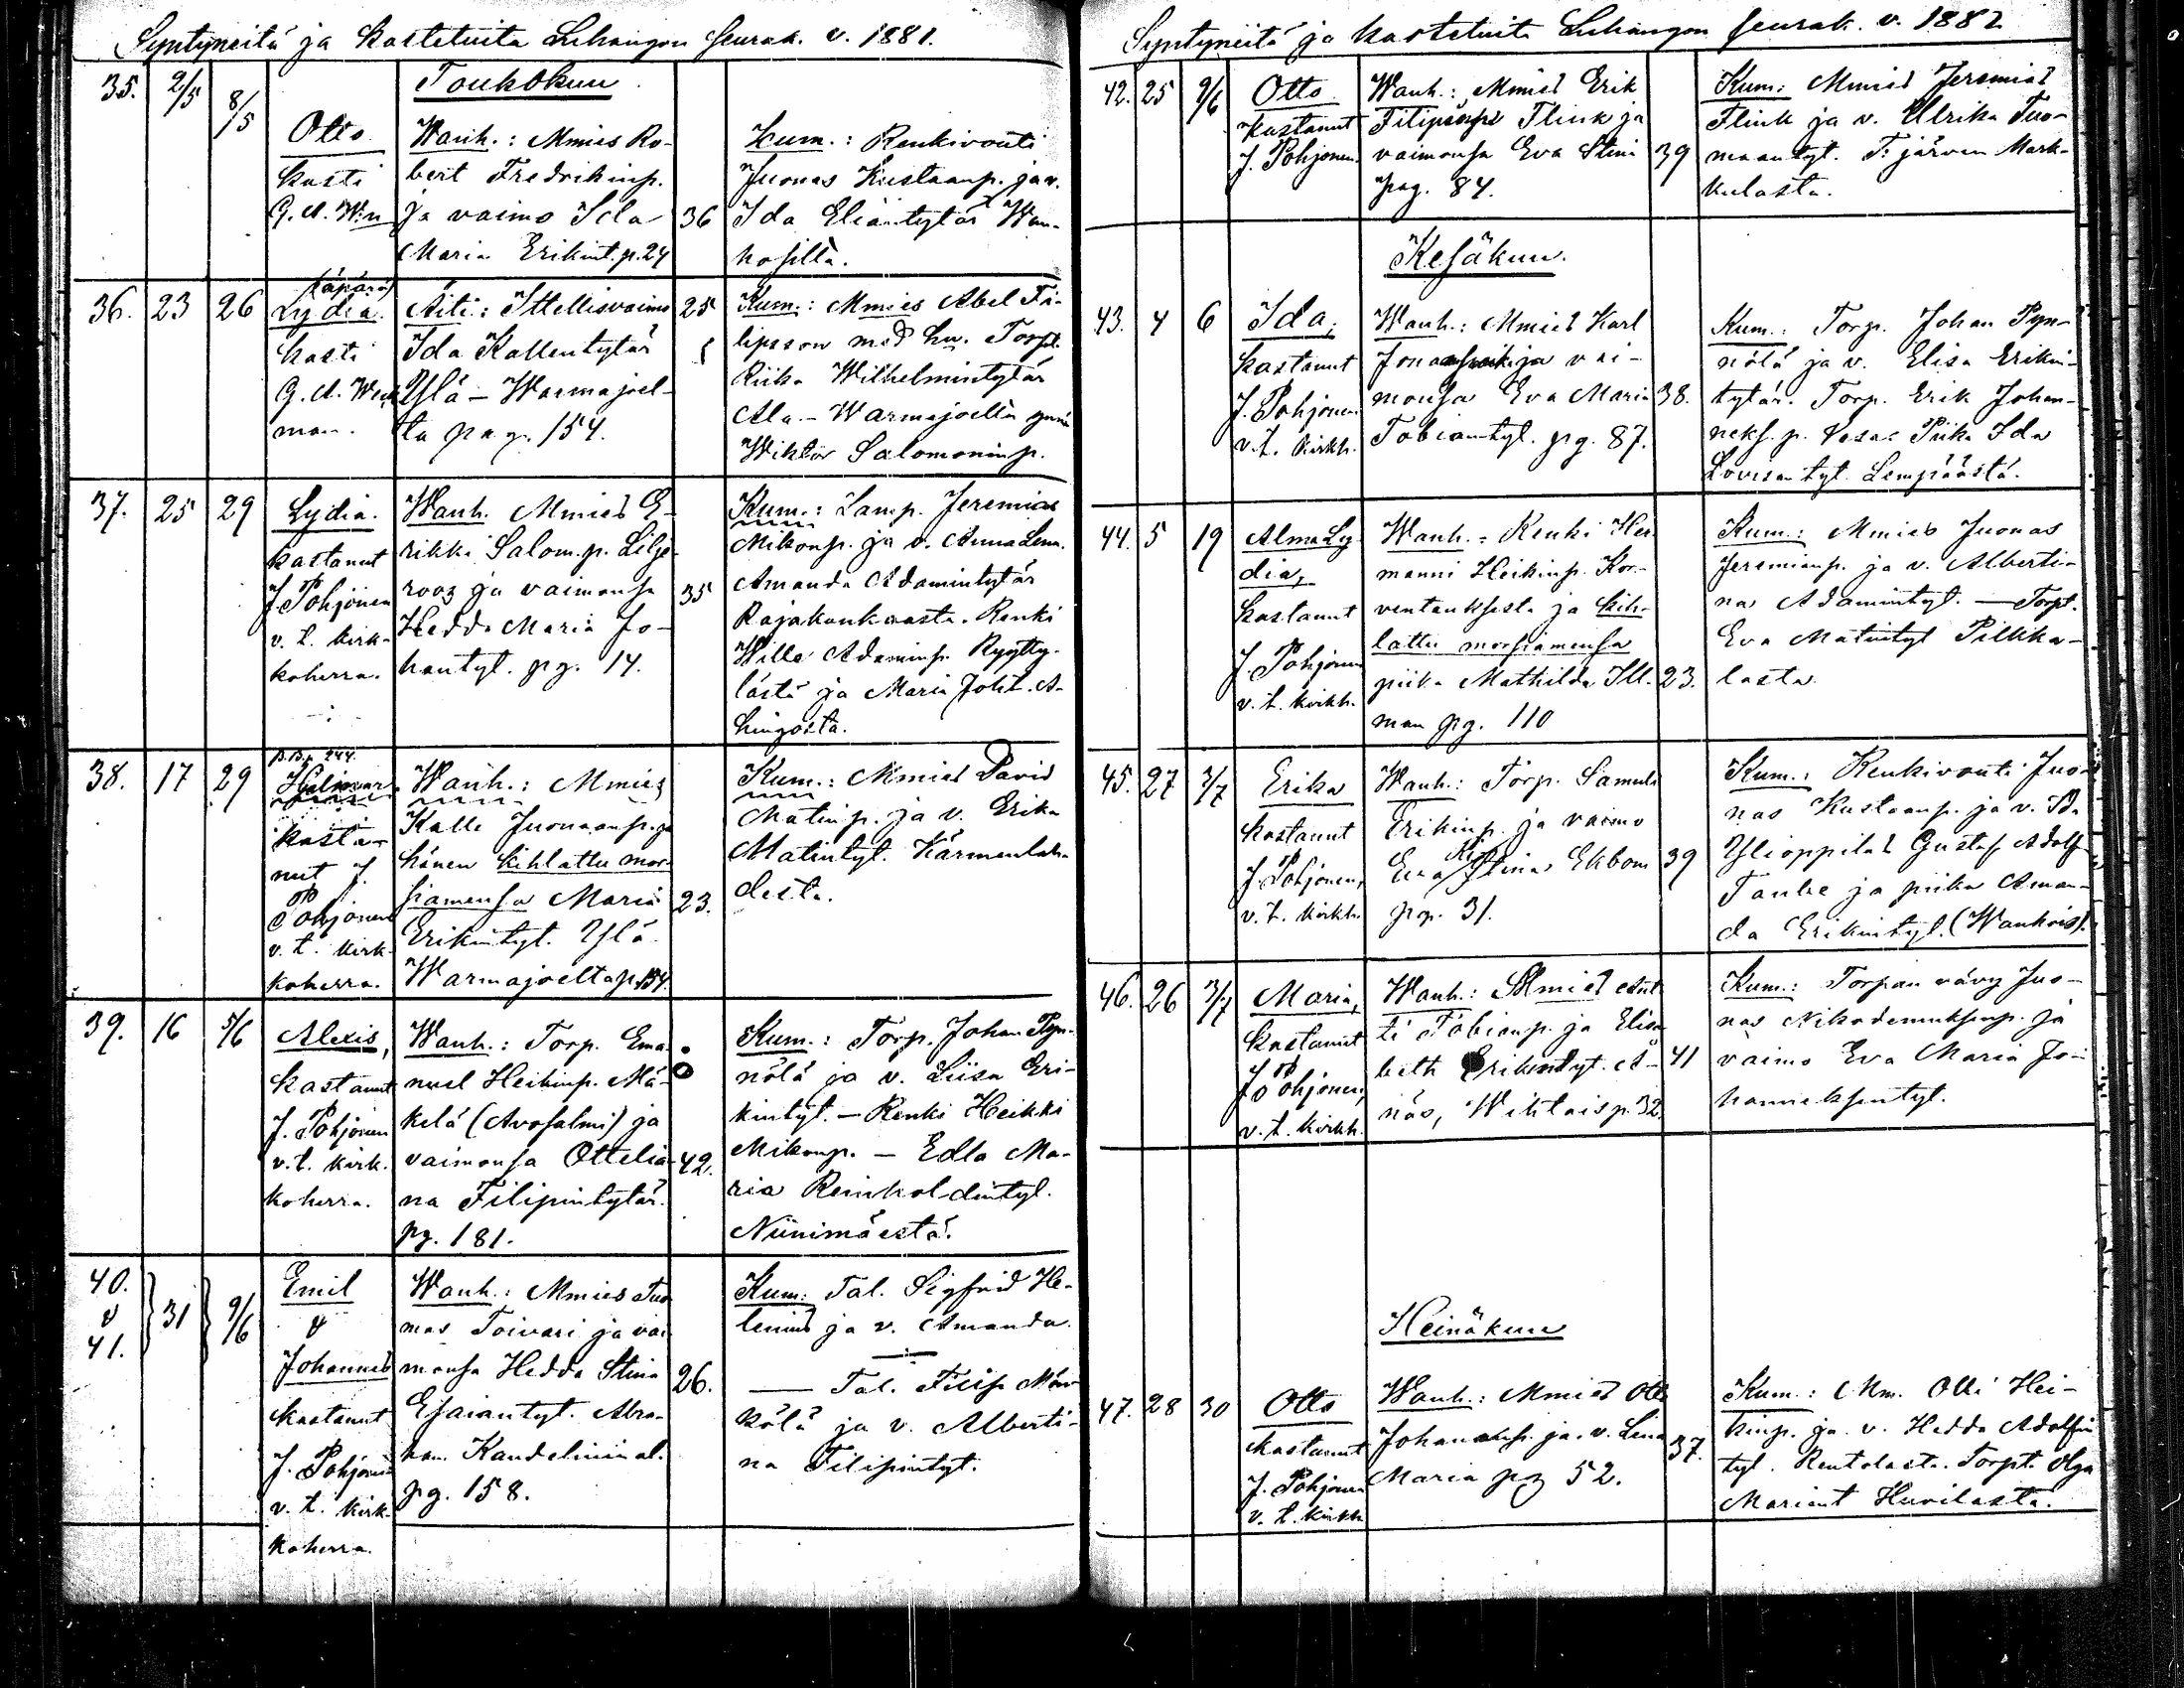 Syntyneitä ja kastetuita Luhangon seurak. v. 1881.
Toukokuu
35. 2/5 8/5
Otto
kasti
G. A.
Wanh.: Mmies Ro-
bert Fredrikinp.
ja vaimo Ida
Maria Erikint. p. 24
36
Kum.: Renkivouti
Juonas Kustaanp. ja v.
Ida Eliäntytär Wan-
hosilta.
36. 23 26
(äpärä)
Lydia.
kasti
G. A.
man.
Äiti: Ittellisvaimo
Ida Kallentytär
Ylä-Warmajoel-
ta pag. 154.
25
Kum.: Mmies Abel Fi-
lipsson med hu. Torpt.
Riika Wilhelmintytär
Ala-Warmajoelta
Wiktor Salomoninp.
37. 25 29
Lydia.
kastanut
J. Pohjonen
v. t. kirk-
koherra.
Wanh. Mmies E-
rikki Salom.p. Lilje-
roos ja vaimonsa
Hedda Maria Jo-
hantyt. pg. 14.
35
Kum.: Lamp. Jeremias
Mikonp. ja v. Anna Lena.
Amanda Adamintytär
Rajakankaasta. Renki
Wille Adaminp. Ryytty-
lästä ja Maria Joh.t. A-
hingosta.
38. 17 29
B.B. p. 244.
kasta-
nut J.
Pohjonen
v. t. kirk-
koherra.
Wanh.: Mmies
Kalle Juonaanp. ja
hänen kihlattu mor-
siamensa Maria
Erikintyt. Ylä-
Warmajoelta p. 154.
23.
Kum.: Mmies David
Matinp. ja v. Erika
Matintyt. Kärmenlah-
desta.
39. 16 5/6
Alexis,
kastanut
J. Pohjonen
v. t. kirk-
koherra.
Wanh.: Torp. Ema-
nuel Heikinp. Mä-
kelä (Avosalmi) ja
vaimonsa Ottelia-
na Filipintytär.
pg. 181.
42.
Kum.: Torp. Johan Pyn-
nölä ja v. Liisa Eri-
kintyt. — Renki Heikki
Mikonp. — Edla Ma-
ria Reinholdintyt.
Niinimäestä.
40. & 41. 31 9/6
Emil
&
Johannes
kastanut
J. Pohjonen
v. t. kirk-
koherra.
Wanh.: Mmies Tuo-
mas Toivari ja vai-
monsa Hedda Stina
Esaiantyt. Abra-
ham Kandelinin al.
pg. 158.
26.
Kum: Tal. Sigfrid He-
lenius ja v. Amanda.
— Tal. Filip
kölä ja v. Alberti-
na Filipintyt.
Syntyneitä ja kastetuita Luhangon seurak. v. 1882
42. 25 9/6
Otto
kastanut
J. Pohjonen.
Wanh.: Mmies Erik
Filipinp. Flink ja
vaimonsa Eva Stina
pag. 84.
39
Kum: Mmies Jeremias
Flink ja v. Ulrika Tuo-
maantyt. T:järven Mark-
kulasta.
Kesäkuu.
43. 4 6
Ida,
kastanut
J. Pohjonen
v. t. kirkh.
Wanh.: Mmies Karl
ja vai-
monsa Eva Maria
Tobiantyt. pg. 87.
38.
Kum.: Torp. Johan Pyn-
nölä ja v. Elisa Erikin-
tytär. Torp. Erik Johan-
neks.p. Piika Ida
Lovisantyt. Lempäästä.
44. 5 19
Alma Ly-
dia,
kastanut
J. Pohjonen
v. t. kirkh.
Wanh.: Renki Her-
manni Heikinp. Kor-
ventauksesta ja kih-
lattu morsiamensa
piika Mathilda Ill-
man pg. 110
23.
Kum.: Mmies Juonas
Jeremianp. ja v. Alberti-
na Adamintyt. — Torpt.
Eva Matintyt Pilkka-
lasta.
45. 27 3/7
Erika
kastanut
J. Pohjonen,
v. t. kirkh.
Wanh.: Torp. Samuli
Erikinp. ja vaimo
Eva Stina Ekbom
pg. 31.
39
Kum.: Renkivouti Juo-
nas Kustaanp. ja v. Ida
Ylioppilas Gustaf Adolf
Taube ja piika Aman-
da Erikintyt. (Wanhois).
46. 26 3/7
Maria,
kastanut
J. Pohjonen,
v. t. kirkh.
Wanh.: Mmies Ant-
ti Tobianp. ja Elisa-
beth Erikintyt. A-
näs, p. 32
41
Kum.: Torpan vävy Juo-
nas Nikodemuksenp. ja
vaimo Eva Maria Jo-
hanneksentyt.
Heinäkuu
47. 28 30
Otto
kastanut
J. Pohjonen
v. t. kirkh.
Wanh.: Mmies Otto
Johananp. ja v. Lena
Maria pg 52.
37.
Kum.: Mm. Olli Hei-
kinp. ja v. Hedda Adolfin
tyt. Rentolasta. Torpt. Olga
Mariant Huvilasta.